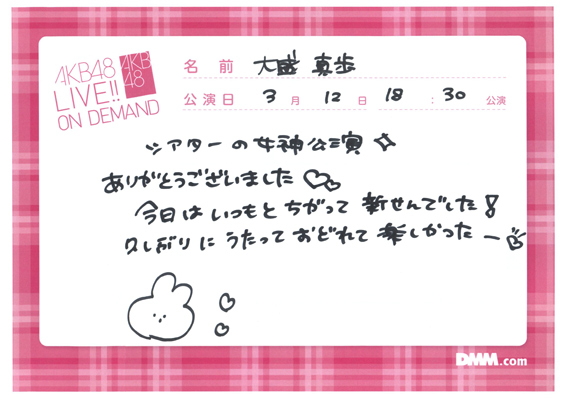 AKB48
LIVE!!
ON DEMAND
AKB
48
名前 大盛 真歩
公演日 3月 12日 18:30 公演
シアターの女神公演
ありがとうございました
今日はいつもとちがって新せんでした!
久しぶりにうたっておどれて楽しかったー
DMM.com